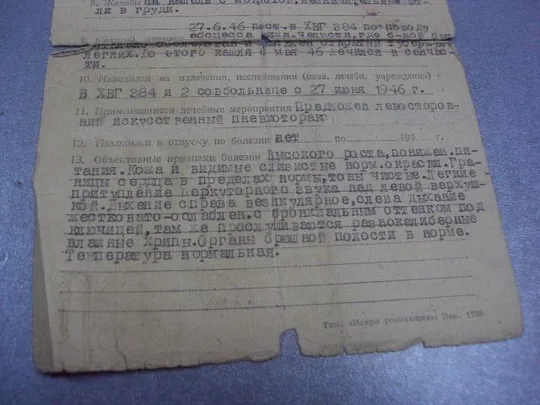 8. Жалобы на кашель с мокротой, незначительные бо-
ли в груди.
27.6.46 пост.в ХВГ 384 по поводу
абсцесса
легких.До этого
ти.
10. Находился на излечении, исследовании (назв. лечебн. учреждения)
В ХВГ 384 и 2 совбольнице с 27 июня 1946 г.
11. Применявшиеся лечебные мероприятия Предложен левосторон-
ний искусственный пневмоторакс
12. Находился в отпуску по болезни нет по 194 г.
13. Объективные признаки болезни Высокого роста,понижен.пи-
тания.Кожа и видимые слизистые норм.окраски.Гра-
ницы сердца в пределах нормы,тоны чистые.Легкие
притупление перкуторного звука над левой верхуш-
кой.Дыхание справа везикулярное,слева дыхание
жестковато-ослаблен.с бронхиальным оттенком под
ключицей,там же прослушиваются разнокалиберные
влажные хрипы.Органы брюшной полости в норме.
Температура нормальная.
Тип. «Искра революции» Зак.